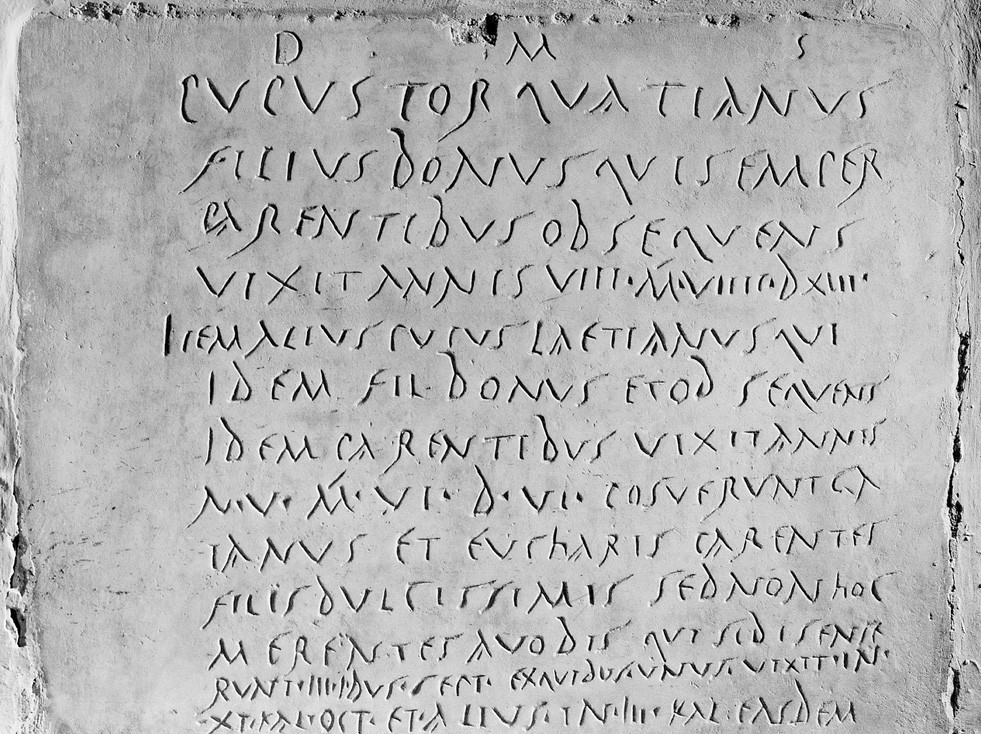 D M S
PVPVS TORQVATIANVS
FILIVS BONVS QVI SEMPER
PARENTIBVS OBSEQVENS
VIXIT ANNIS VIII·M·VIIII·D·XIII·
ITEM ALIVS PVPVS LAETIANVS QVI
IDEM FIL·BONVS ET OB SEQVENS
IDEM PARENTIBVS VIXIT ANNIS
N·V·M·VI·D·VI·POSVERVNT GA
IANVS ET EVCHARIS PARENTES
FILIS DVLCISSIMIS SED NON HOC
MERENTES A VOBIS QVI SIBI SENSE
RVNT·IIII·IDVS·SEPT·EX QVIBVS·VNVS·VIXIT·IN·
XI·KAL·OCT·ET·ALIVS·IN·III·KAL·EASDEM